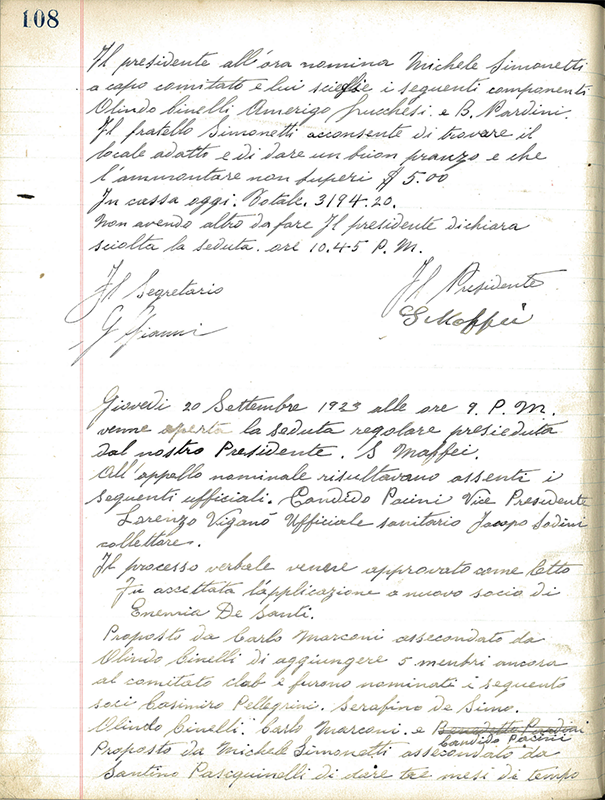 108
Il presidente all'ora nomina Michele Simonetti
a capo comitato e lui scieglie i seguenti componenti
Olindo Cinelli, Amerigo Lucchesi. e B. Pardini.
Il fratello Simonetti acconsente di trovare il
locale adatto e di dare un buon pranzo e che
l'ammontare non superi $ 5.00
In cassa oggi. Totale. 3194.20.
Non avendo altro da fare Il presidente dichiara
sciolta la seduta. ore 10.45 P.M.
Il Segretario Il Presidente
G Gianni S Maffei
Giovedi 20 Settembre 1923 alle ore 9. P. M.
venne aperta la seduta regolare presieduta
dal nostro Presidente. S Maffei.
All'appello nominale risultavano assenti i
seguenti ufficiali. Candido Pacini Vice Presidente
Lorenzo Viganó Ufficiale sanitario Jacopo Sodini
collettore.
Il processo verbale venne approvato come letto
Fu accettata l'applicazione a nuovo socio di
De Santi.
Proposto da Carlo Marconi assecondato da
Olindo Cinelli di aggiungere 5 menbri ancora
al comitato club e furono nominati i seguento
soci Casimiro Pellegrini. Serafino de Simo.
Olindo Cinelli. Carlo Marconi. e Benedetto Pardini
Candido Pacini
Proposto da Michele Simonetti assecondato da
Santino Pasquinelli di dare tre mesi di tempo